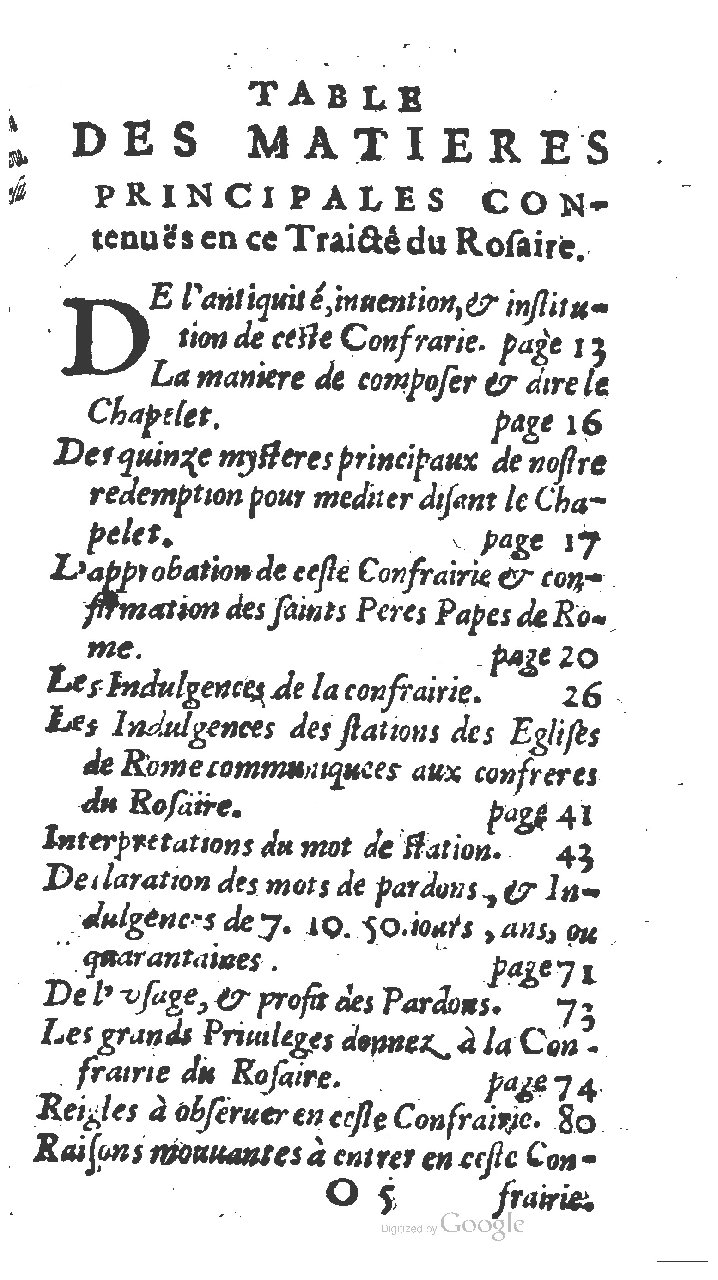 TABLE
DES MATIERES
PRINCIPALES CON-
tenuës en ce Traicté du Roſaire.
DE l'antiquité, inuention, & inſtitu-
tion de ceſte Confrarie. page 13
La maniere de compoſer & dire le
Chapelet. page 16
Des quinze myſteres principaux de noſtre
redemption pour mediter diſant le Cha-
pelet. page 17
L'approbation de ceſte Confrairie & con-
firmation des ſaints Peres Papes de Ro-
me. page 20
Les Indulgences de la confrairie. 26
Les Indulgences des ſtations des Egliſes
de Rome communiquees aux confreres
du Roſaire. page 41
Interpretations du mot de ſtation. 43
Declaration des mots de pardons, & In-
dulgences de 7. 10. 50. iours, ans, ou
quarantaines. page 71
De l'vſage, & profit des Pardons. 73
Les grands Priuileges donnez à la Con-
frairie du Roſaire. page 74
Reigles à obſeruer en ceſte Confrairie. 80
Raiſons mouuantes à entrer en ceſte Con-
O 5 frairie.
Digitized by Google